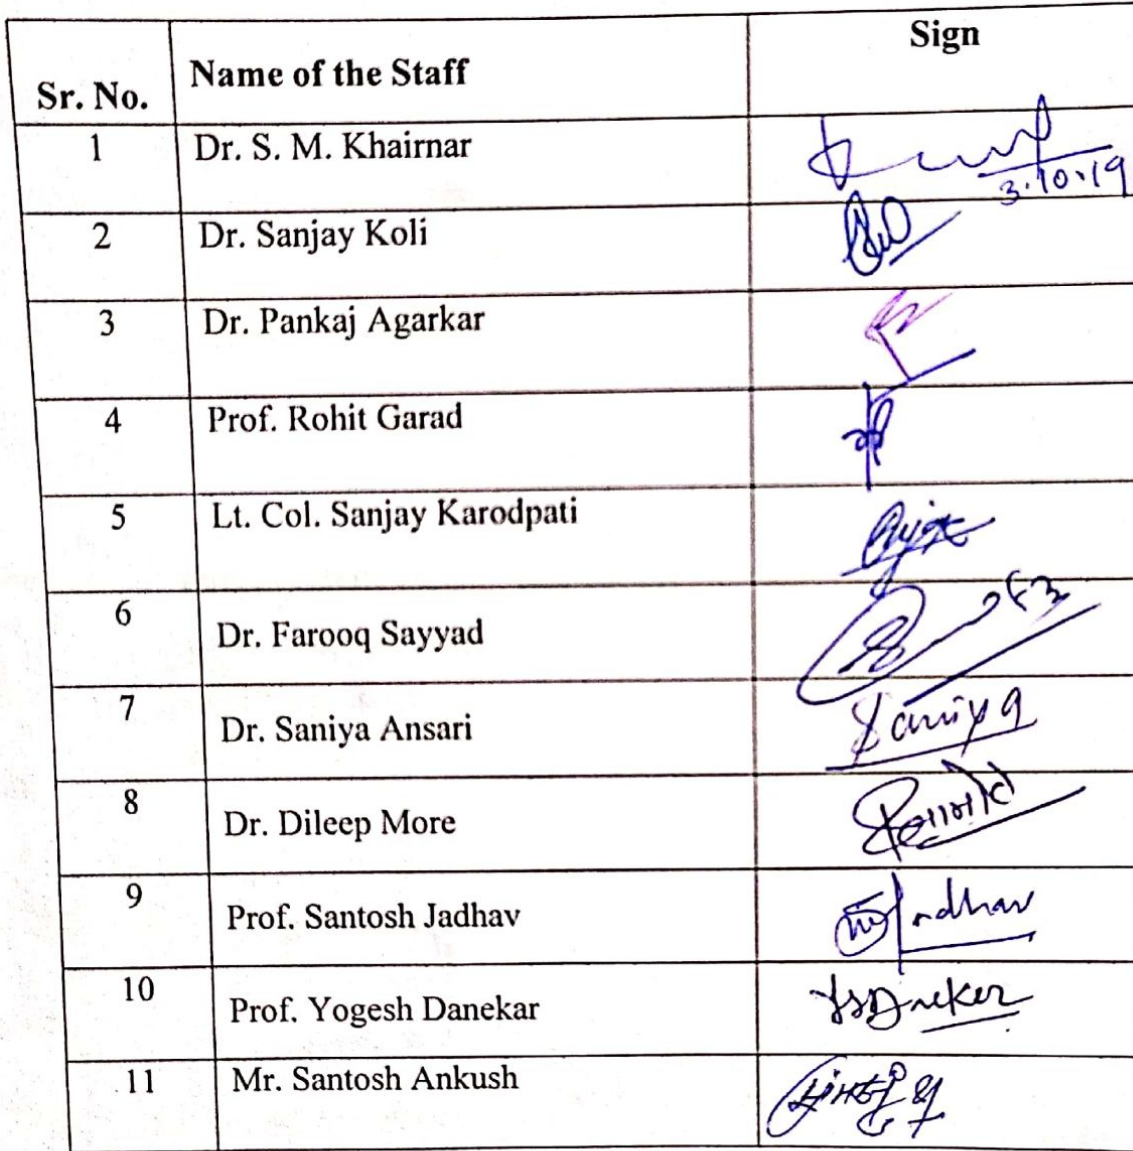 Sr. No. Name of the Staff Sign
1 Dr. S. M. Khairnar
3.10.19
2 Dr. Sanjay Koli
3 Dr. Pankaj Agarkar
4 Prof. Rohit Garad
5 Lt. Col. Sanjay Karodpati
6 Dr. Farooq Sayyad
7 Dr. Saniya Ansari Saniya
8 Dr. Dileep More
9 Prof. Santosh Jadhav Jadhav
10 Prof. Yogesh Danekar
11 Mr. Santosh Ankush